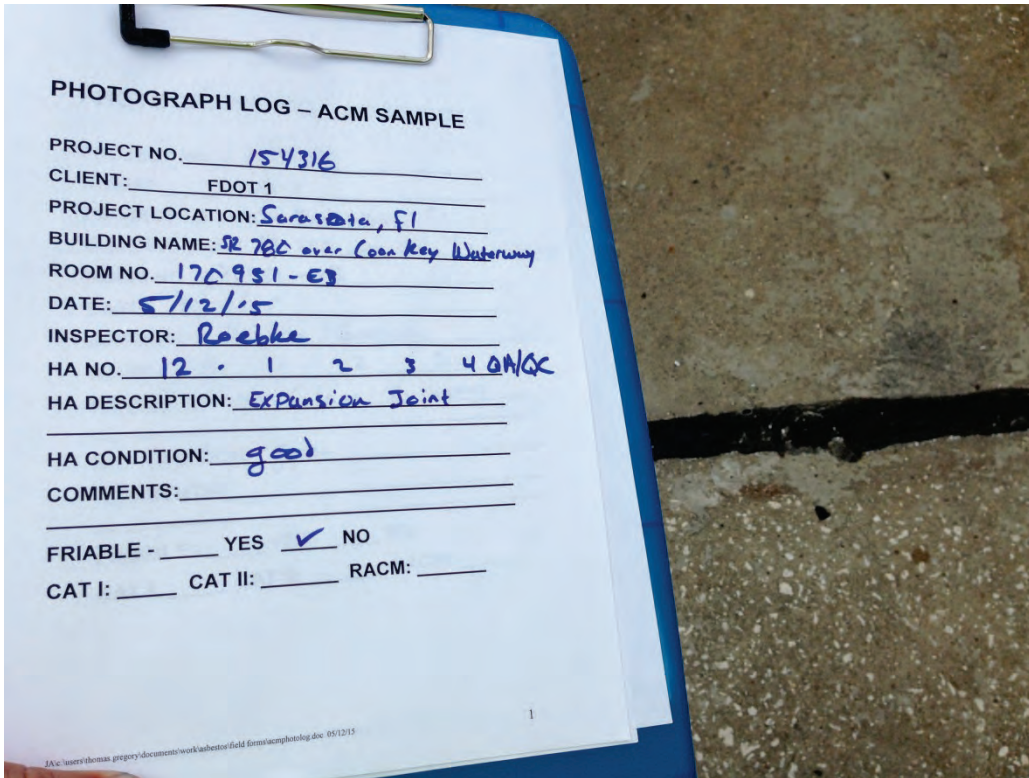 PHOTOGRAPH LOG – ACM SAMPLE
PROJECT NO. 154316
CLIENT: FDOT 1
PROJECT LOCATION: Sarasota, Fl
BUILDING NAME: SR 780 over Coon Key Waterway
ROOM NO. 170951-EB
DATE: 5/12/15
INSPECTOR: Roebke
HA NO. 12 - 1 2 3 4 QA/QC
HA DESCRIPTION: Expansion Joint
HA CONDITION: good
COMMENTS:
FRIABLE - YES ✓ NO
CAT I: CAT II: RACM:
1
JA\c:\users\thomas.gregory\documents\work\asbestos\field forms\acmphotolog.doc 05/12/15